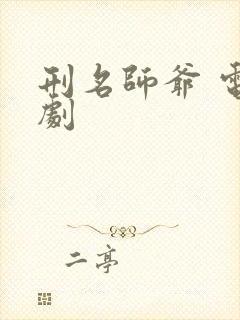 刑名師爺 電
劇
二亭